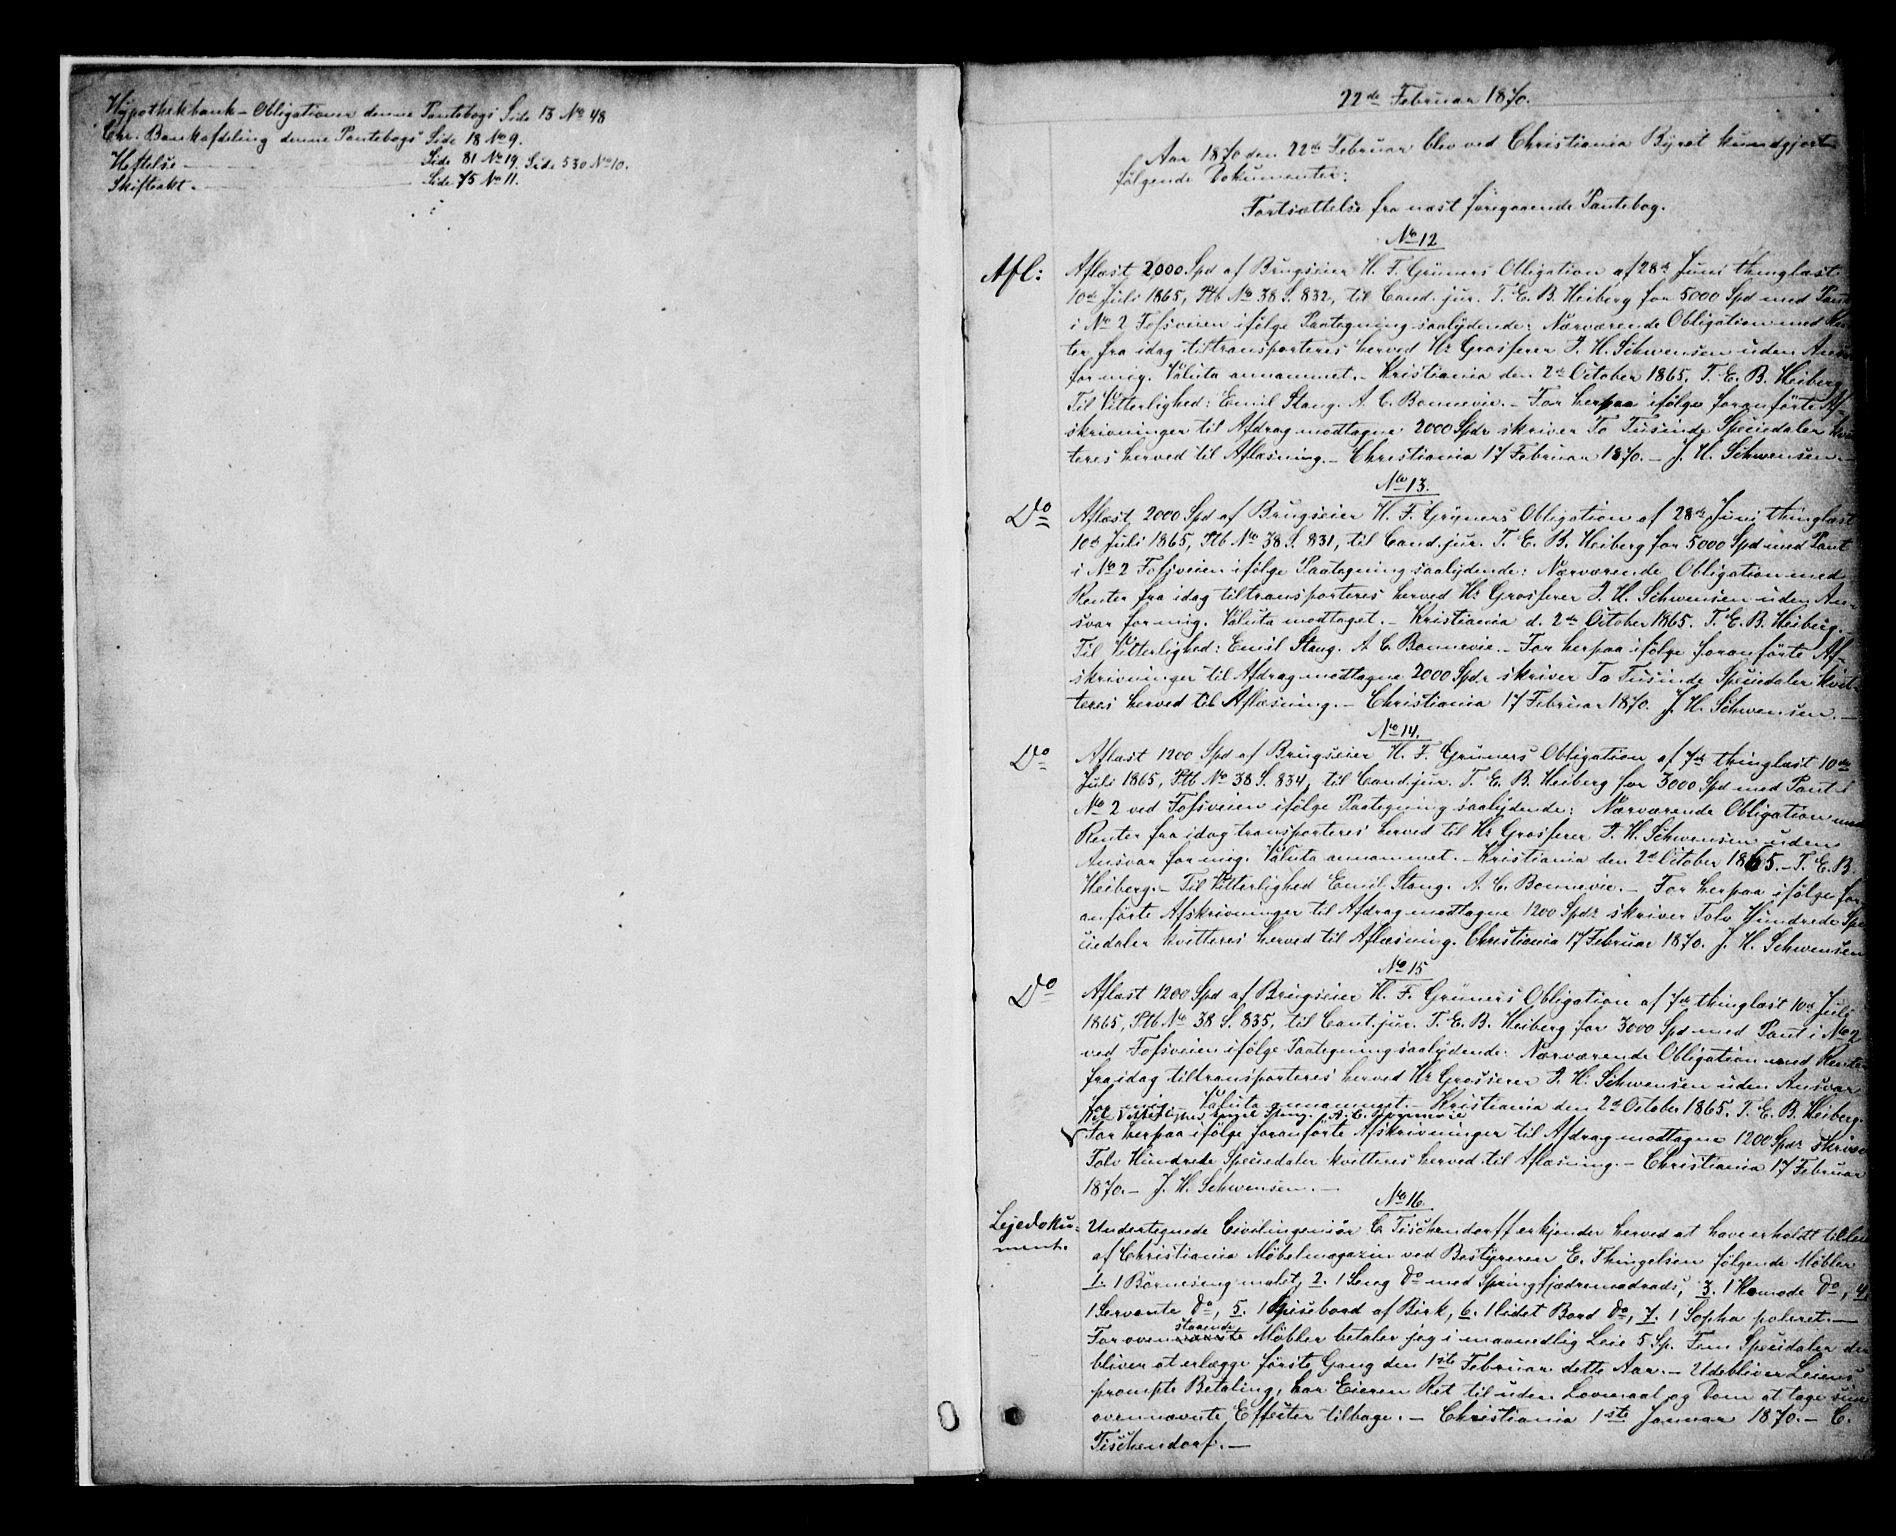 Hypothekbank-Obligationer denne Pantebogs Side 13 No 48
Chr. Bankafdeling denne Pantebogs Side 18 No 9.
Heftelse — Side 81 No 19, Side 530 No 10.
Skifteakt. — Side 75 No 11.
22de Februar 1870.
Aar 1870 den 22de Februar blev ved Christiania Byret kundgjort
følgende Dokumenter:
Fortsættelse fra næst foregaaende Pantebog.
No 12
Afl: Aflæst 2000 Spd af Brugseier H. F. Grüners Obligation af 28de Juni thinglæst
10de Juli 1865, Ptb No 38 S. 832, til Cand. jur. T. E. B. Heiberg for 5000 Spd med Pant
i No 2 Fossveien ifølge Paategning saalydende: Nærværende Obligation med Ren-
ter fra idag tiltransporteres herved Hr Grosserer J. H. Schwensen uden Ansvar
for mig. Valuta annammet. – Kristiania den 2de October 1865. T. E. B. Heiberg.
Til Vitterlighed: Emil Stang. A. C. Bonnevie. – For herpaa ifølge foranførte Af-
skrivninger til Afdrag modtagne 2000 Spdr skriver To Tusinde Speciedaler kvit-
teres herved til Aflæsning. – Christiania 17 Februar 1870. – J. H. Schwensen. –
No 13.
Do Aflæst 2000 Spd af Brugseier H. F. Grüners Obligation af 28de Juni thinglæst
10de Juli 1865, Ptb No 38 S. 831, til Cand. jur. T. E. B. Heiberg for 5000 Spd med Pant
i No 2 Fossveien ifølge Paategning saalydende: Nærværende Obligation med
Renter fra idag tiltransporteres herved Hr Grosserer J. H. Schwensen uden An-
svar for mig. Valuta modtaget. – Kristiania d. 2de October 1865. T. E. B. Heiberg. –
Til Vitterlighed: Emil Stang. A. C. Bonnevie. – For herpaa ifølge foranførte Af-
skrivninger til Afdrag modtagne 2000 Spdr skriver To Tusinde Speciedaler kvit-
teres herved til Aflæsning. – Christiania 17 Februar 1870. J. H. Schwensen. –
No 14.
Do Aflæst 1200 Spd af Brugseier H. F. Grüners Obligation af 7de thinglæst 10de
Juli 1865, Ptb No 38 S. 834, til Cand. jur. T. E. B. Heiberg for 3000 Spd med Pant i
No 2 ved Fossveien ifølge Paategning saalydende: Nærværende Obligation med
Renter fra idag transporteres herved til Hr Grosserer J. H. Schwensen uden
Ansvar for mig. Valuta annammet. – Kristiania den 2de October 1865. – T. E. B.
Heiberg. – Til Vitterlighed Emil Stang. A. C. Bonnevie. – For herpaa ifølge for-
anførte Afskrivninger til Afdrag modtagne 1200 Spdr skriver Tolv Hundrede Spe-
ciedaler kvitteres herved til Aflæsning. Christiania 17 Februar 1870. J. H. Schwensen
No 15
Do Aflæst 1200 Spd af Brugseier H. F. Grüners Obligation af 7de thinglæst 10de Juli
1865, Ptb No 38 S. 835, til Cant. jur. T. E. B. Heiberg for 3000 Spd med Pant i No 2
ved Fossveien ifølge Paategning saalydende: Nærværende Obligation med Renter
fra idag tiltransporteres herved Hr Grosserer J. H. Schwensen uden Ansvar
for mig. Valuta annammet. – Kristiania den 2de October 1865. T. E. B. Heiberg.
Til Vitterlighed Emil Stang. A. C. Bonnevie
For herpaa ifølge foranførte Afskrivninger til Afdrag modtagne 1200 Spdr skriver
Tolv Hundrede Speciedaler kvitteres herved til Aflæsning. – Christiania 17 Februar
1870. – J. H. Schwensen. –
No 16.
Lejedoku-
ment. Undertegnede Civilingeniør C. Tischendorff erkjender herved at have erholdt tilleie
af Christiania Möbelmagazin ved Bestyreren E. Thingelsen følgende Møbler
1. 1 Børneseng malet, 2. 1 Seng Do med Springfjædremadrads, 3. 1 Komode Do, 4.
1 Servante Do, 5. 1 Spisebord af Birk, 6. 1 lidet Bord Do, 7. 1 Sopha poleret. –
For ovenstaaende Møbler betaler jeg i maanedlig Leie 5 Sp. Fem Speciedaler der
bliver at erlægge første Gang den 1ste Februar dette Aar. – Udebliver Leiens
prompte Betaling, har Eieren Ret til uden Lovmaal og Dom at tage sine
ovennævnte Effecter tilbage. – Christiania 1ste Januar 1870. – C.
Tischendorf. –